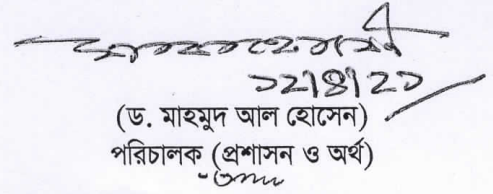 ১২|৪|২১
(ড. মাহমুদ আল হোসেন)
পরিচালক (প্রশাসন ও অর্থ)